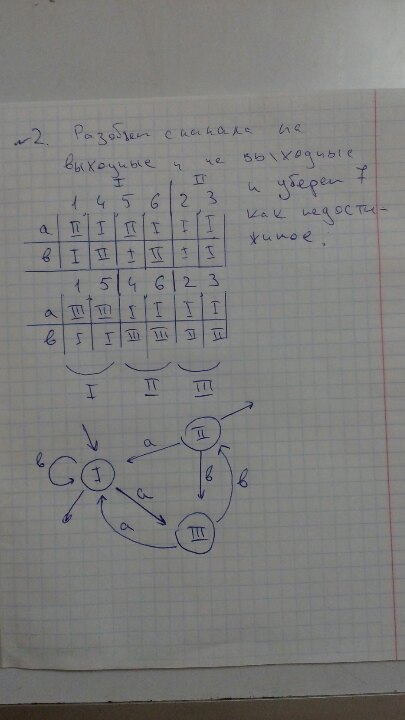 №2. Разобьем сначала на
выходные и не выходные
и уберем 7
как недости-
жимое.
I II
1 4 5 6 2 3
a II I II I I I
b I II I II I I
1 5 4 6 2 3
a III III I I I I
b I I III III II II
I II III
a II
b I a b b
a III